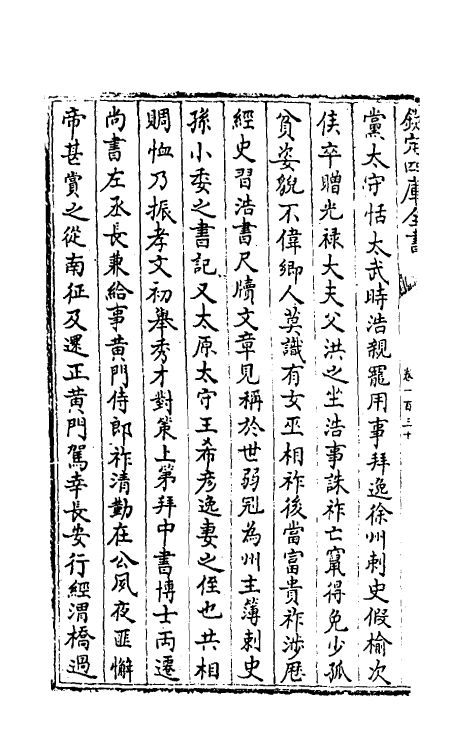 欽定四庫全書
卷一百三十
黨太守恬太武時浩親寵用事拜逸徐州刺史假榆次
侯卒贈光禄大夫父洪之坐浩事誅祚亡竄得免少孤
貧姿貌不偉鄉人莫識有女巫相祚後當富貴祚涉歴
經史習浩書尺牘文章見稱於世弱冠為州主簿刺史
孫小委之書記又太原太守王希彦逸妻之侄也共相
賙恤乃振孝文初舉秀才對策上第拜中書博士再遷
尚書左丞長兼給事黄門侍郎祚清勤在公夙夜匪懈
帝甚賞之從南征及還正黄門駕幸長安行經渭橋過